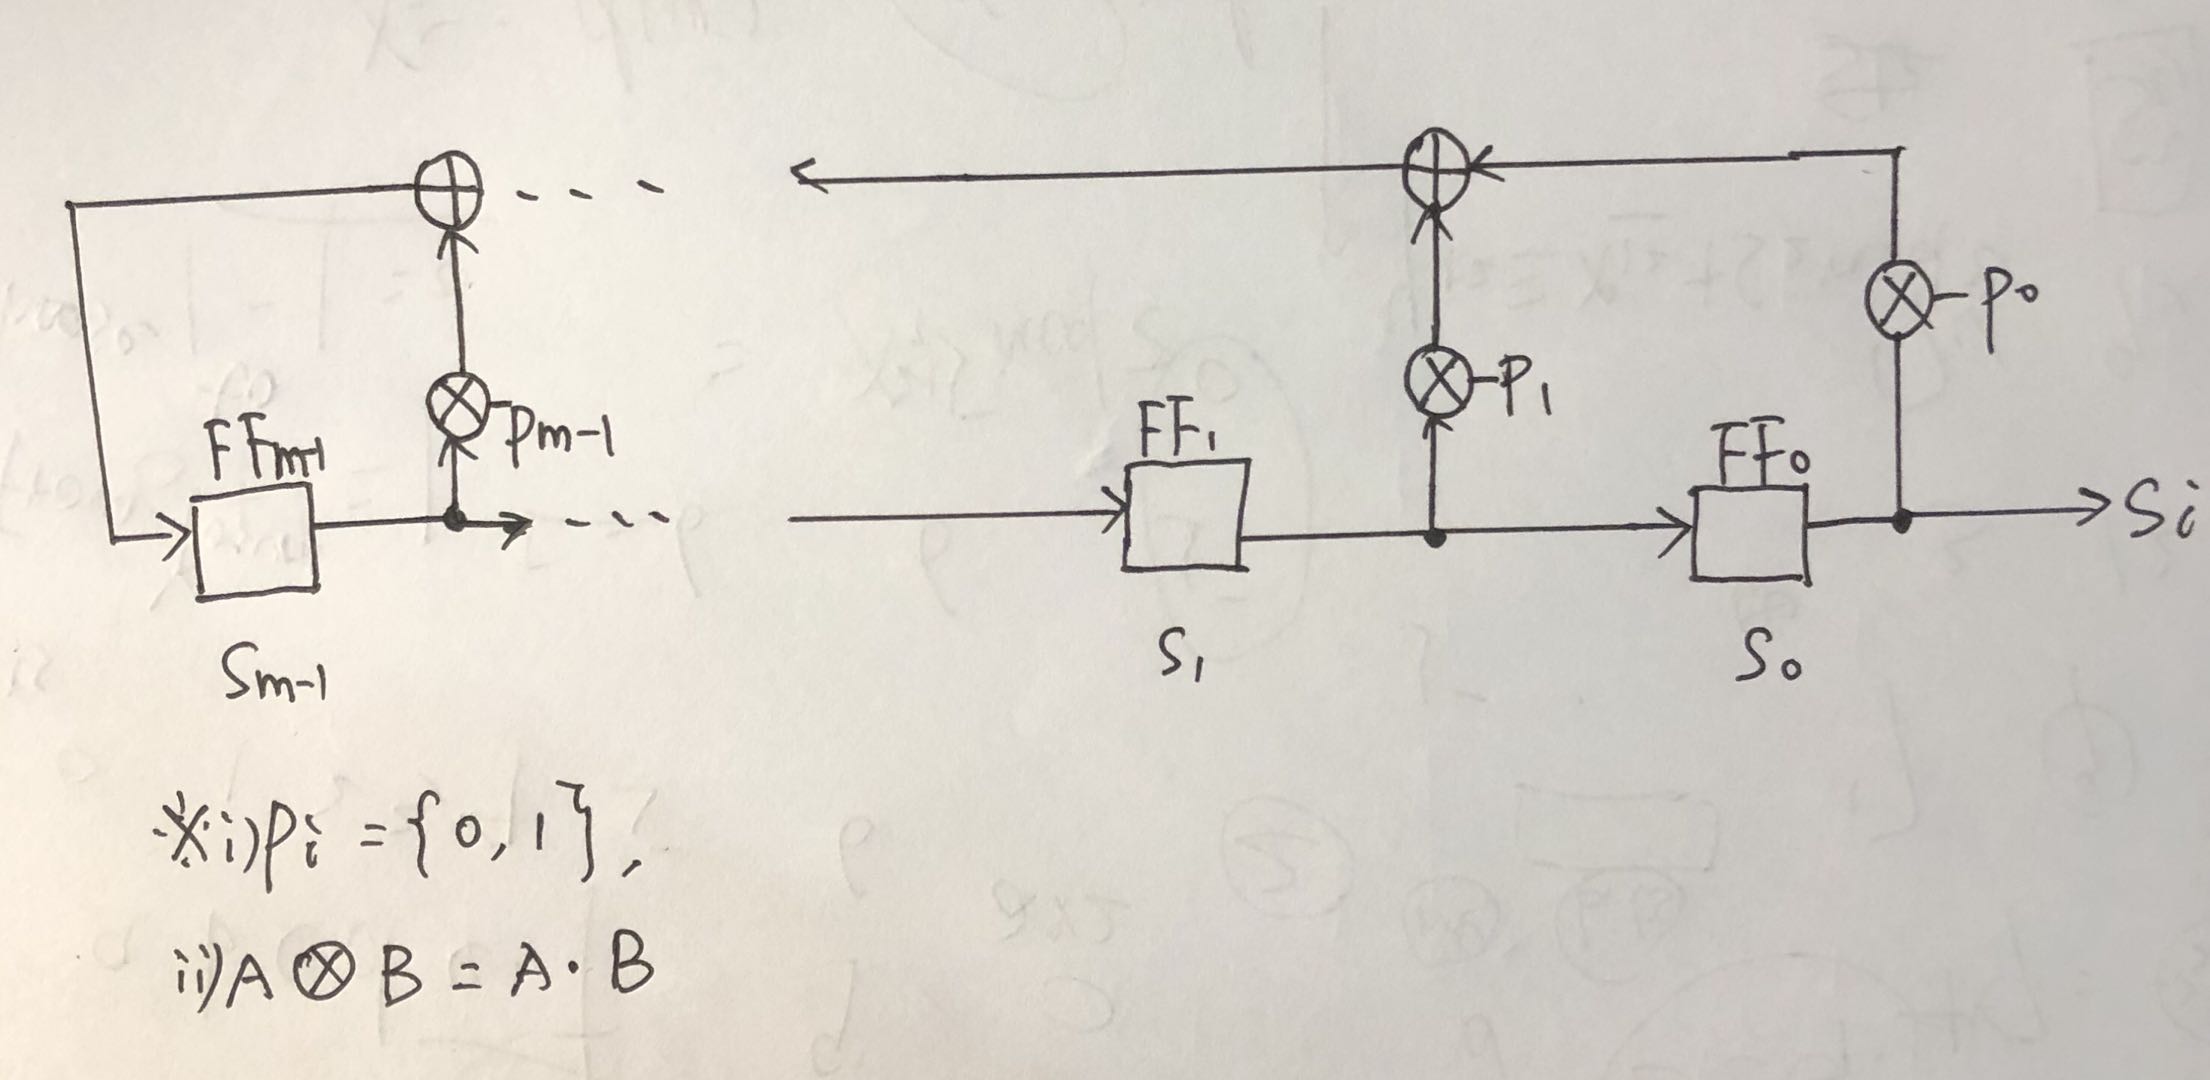 P0
Pm-1
P1
FFm-1
FF1
FF0
Si
Sm-1
S1
S0
※i)Pi = {0, 1},
ii)A ⊗ B = A · B